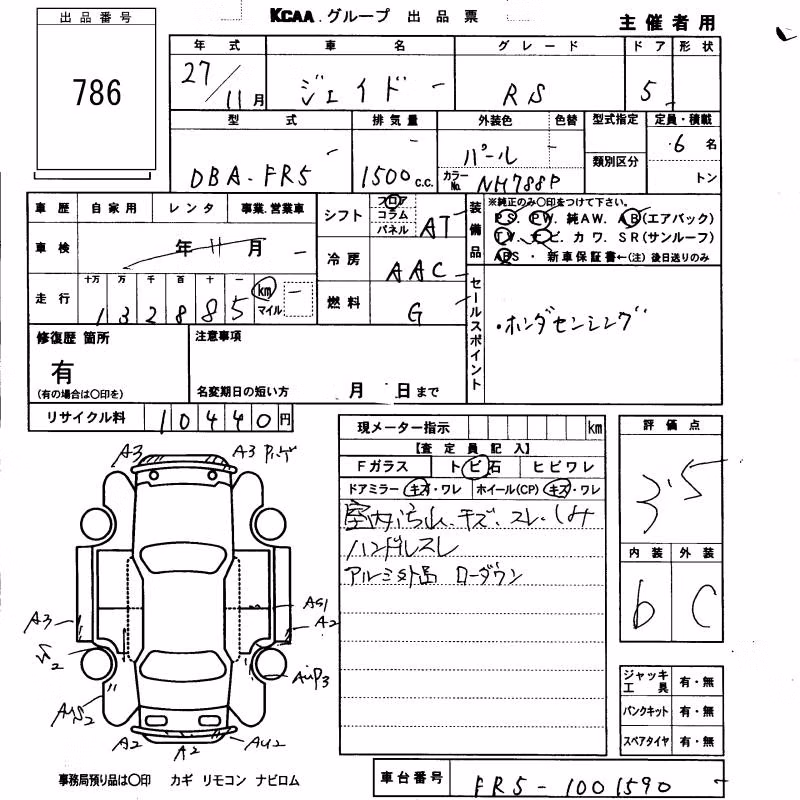 KCAA.グループ 出品票
主催者用
出品番号
786
年式 車名 グレード ドア 形状
27/11月 ジェイド RS 5
型式 排気量 外装色 色替 型式指定 定員・積載
DBA-FR5 1500c.c. パール 6名
カラーNo. NH788P 類別区分 トン
車歴 自家用 レンタ 事業.営業車
車検 年 11 月
走行 十万 万 千 百 十 一
132885 km マイル
シフト フロア コラム パネル AT
冷房 AAC
燃料 G
装備品
※純正のみ○印をつけて下さい。
PS. PW. 純AW. AB(エアバック)
TV. ナビ. カワ. SR(サンルーフ)
ABS・新車保証書←(注)後日送りのみ
セールスポイント
・ホンダセンシング
修復歴 箇所
有
(有の場合は○印を)
注意事項
名変期日の短い方 月 日まで
リサイクル料 10440円
現メーター指示 km
【査定員記入】
Fガラス トビ石 ヒビワレ
ドアミラー キズ・ワレ ホイール(CP) キズ・ワレ
室内汚れ、キズ、スレ、しみ
ハンドルスレ
アルミ外品 ローダウン
評価点
3.5
内装 外装
b C
ジャッキ工具 有・無
パンクキット 有・無
スペアタイヤ 有・無
A3 A3
A3 A2
A2 A2 AU2
事務局預り品は○印 カギ リモコン ナビロム
車台番号 FR5-1001590